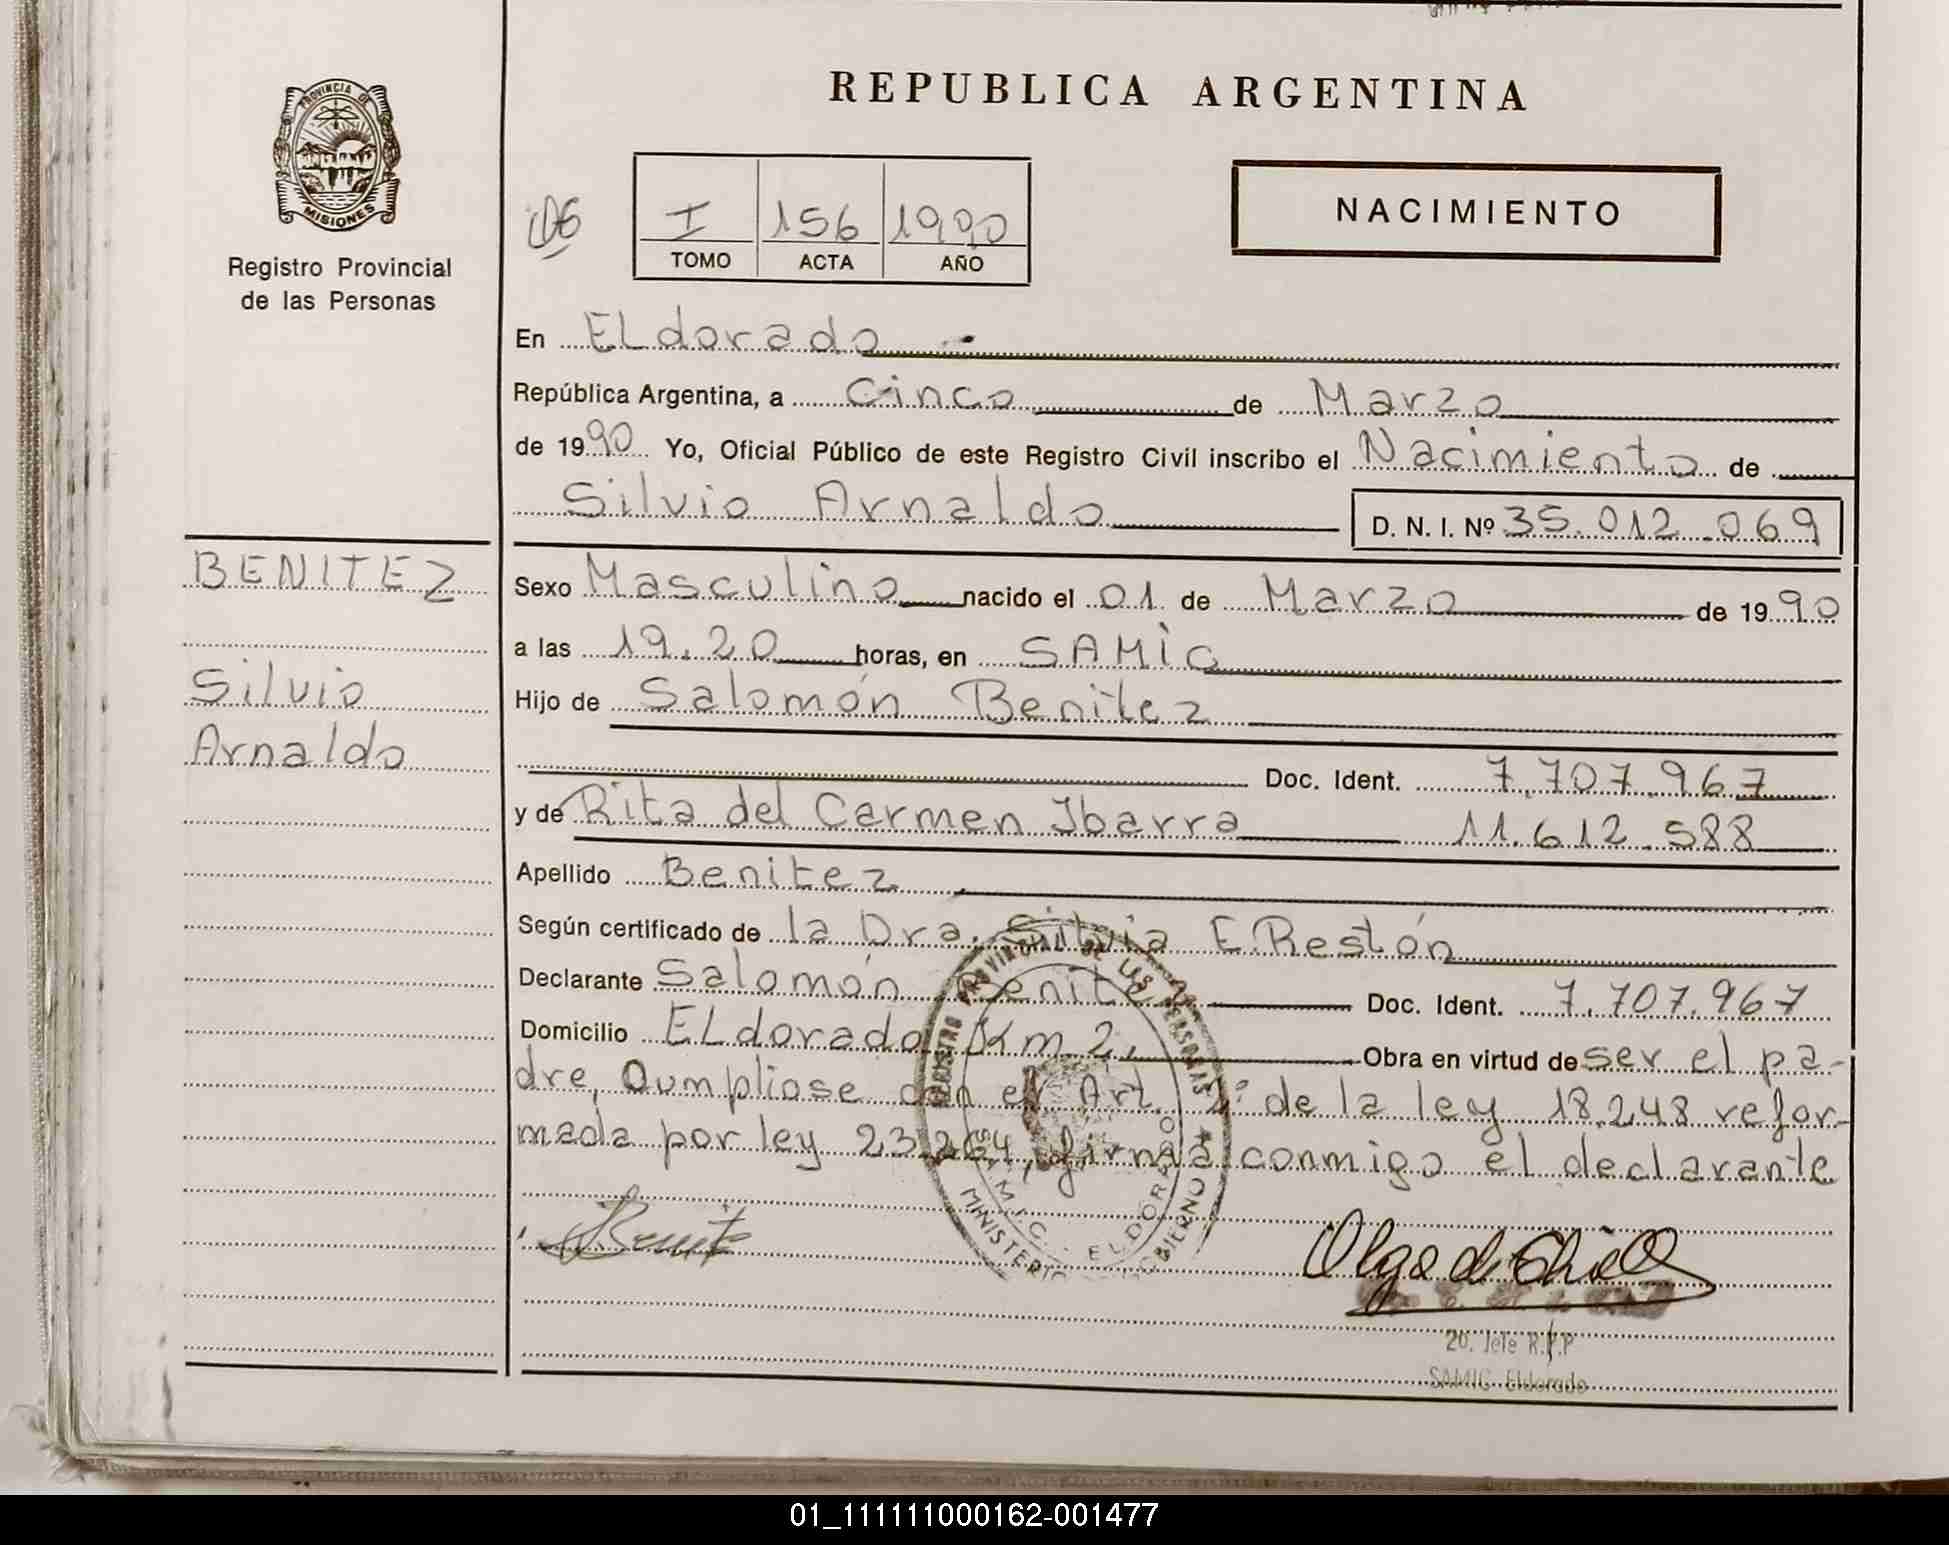 REPUBLICA ARGENTINA
PROVINCIA DE
MISIONES
Registro Provincial
de las Personas
I 156 1990
TOMO ACTA AÑO
NACIMIENTO
En ELdorado
República Argentina, a Cinco de Marzo
de 1990 Yo, Oficial Público de este Registro Civil inscribo el Nacimiento de
Silvio Arnaldo D. N. I. Nº 35.012.069
BENITEZ
Silvio
Arnaldo
Sexo Masculino nacido el 01 de Marzo de 1990
a las 19.20 horas, en SAMIC
Hijo de Salomón Benitez
Doc. Ident. 7.707.967
y de Rita del Carmen Ibarra 11.612.588
Apellido Benitez
Según certificado de la Dra. Silvia E. Restón
Declarante Salomón Benitez Doc. Ident. 7.707.967
Domicilio ELdorado Km 2, Obra en virtud de ser el pa-
dre, Cumpliose con el Art. 2º de la ley 18.248 refor-
mada por ley 23.264, firma conmigo el declarante
REGISTRO PROVINCIAL DE LAS PERSONAS
MINISTERIO GOBIERNO
S.A.M.I.C. ELDORADO
Benitez
Olga de
20. Jefe R.P.P
SAMIC Eldorado
01_111111000162-001477